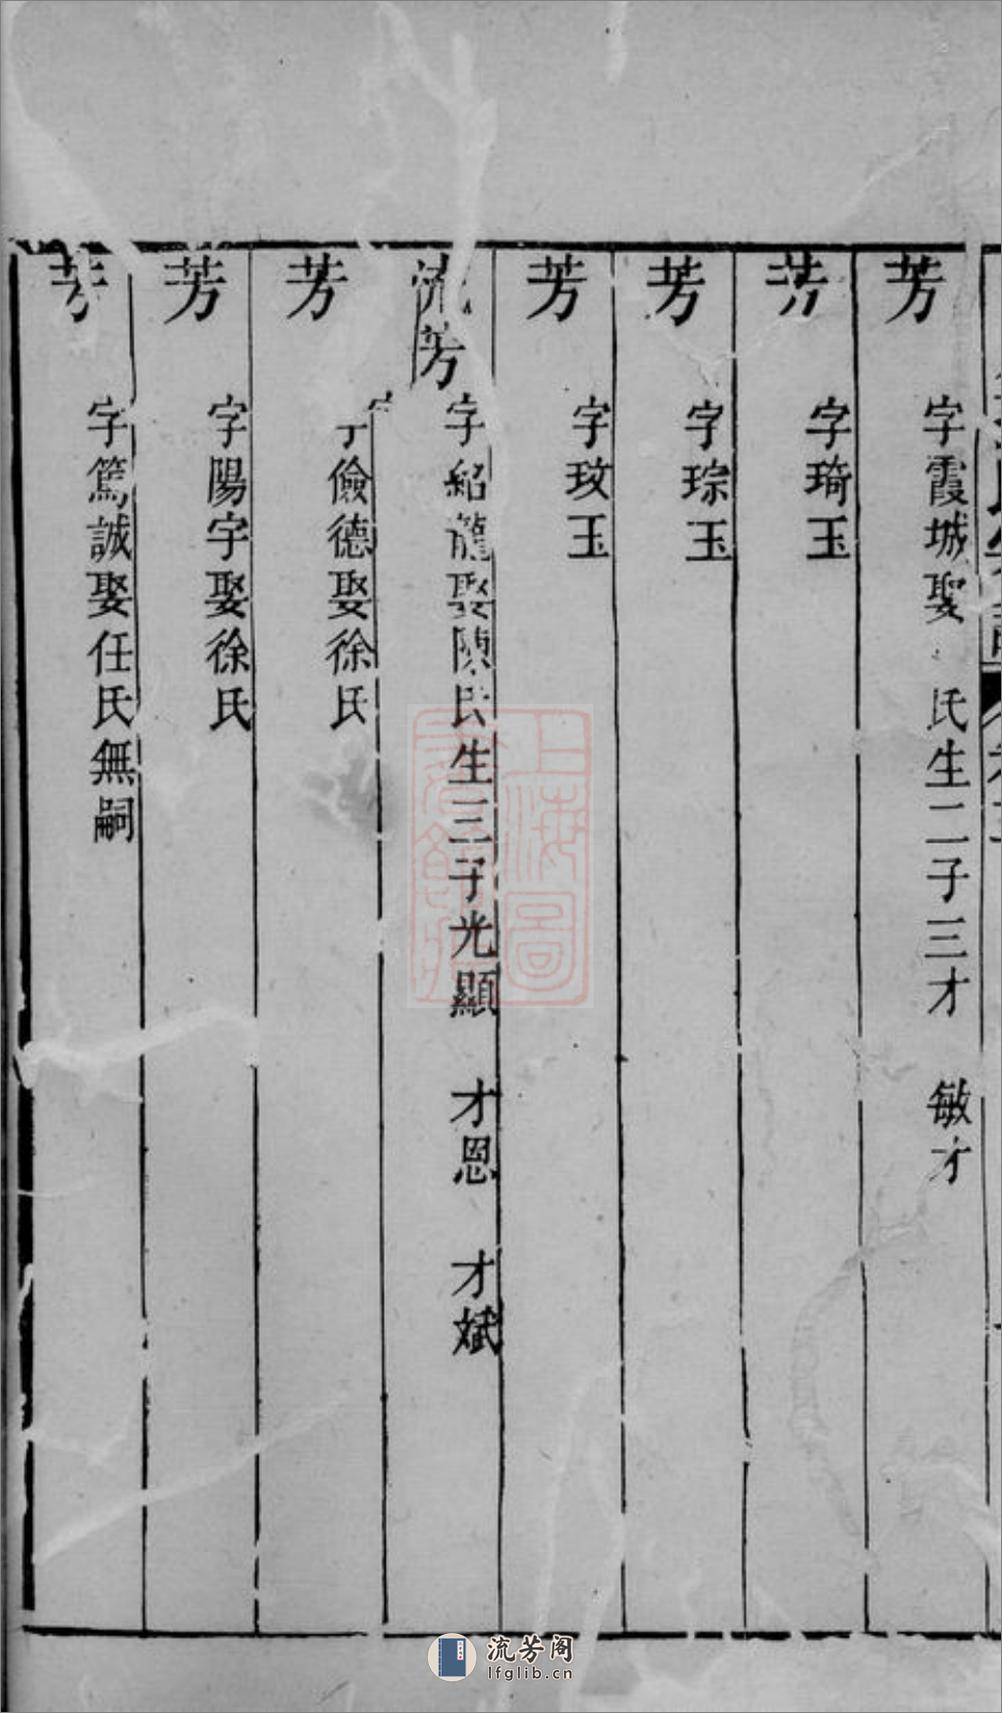 芳 字霞城娶 氏生二子三才 敏才
芳 字琦玉
芳 字琮玉
芳 字玫玉
流芳 字紹龍娶陳氏生三子光顯 才恩 才斌
芳 字儉德娶徐氏
芳 字陽宇娶徐氏
芳 字篤誠娶任氏無嗣
上海圖書館藏
流芳阁
lfglib.cn